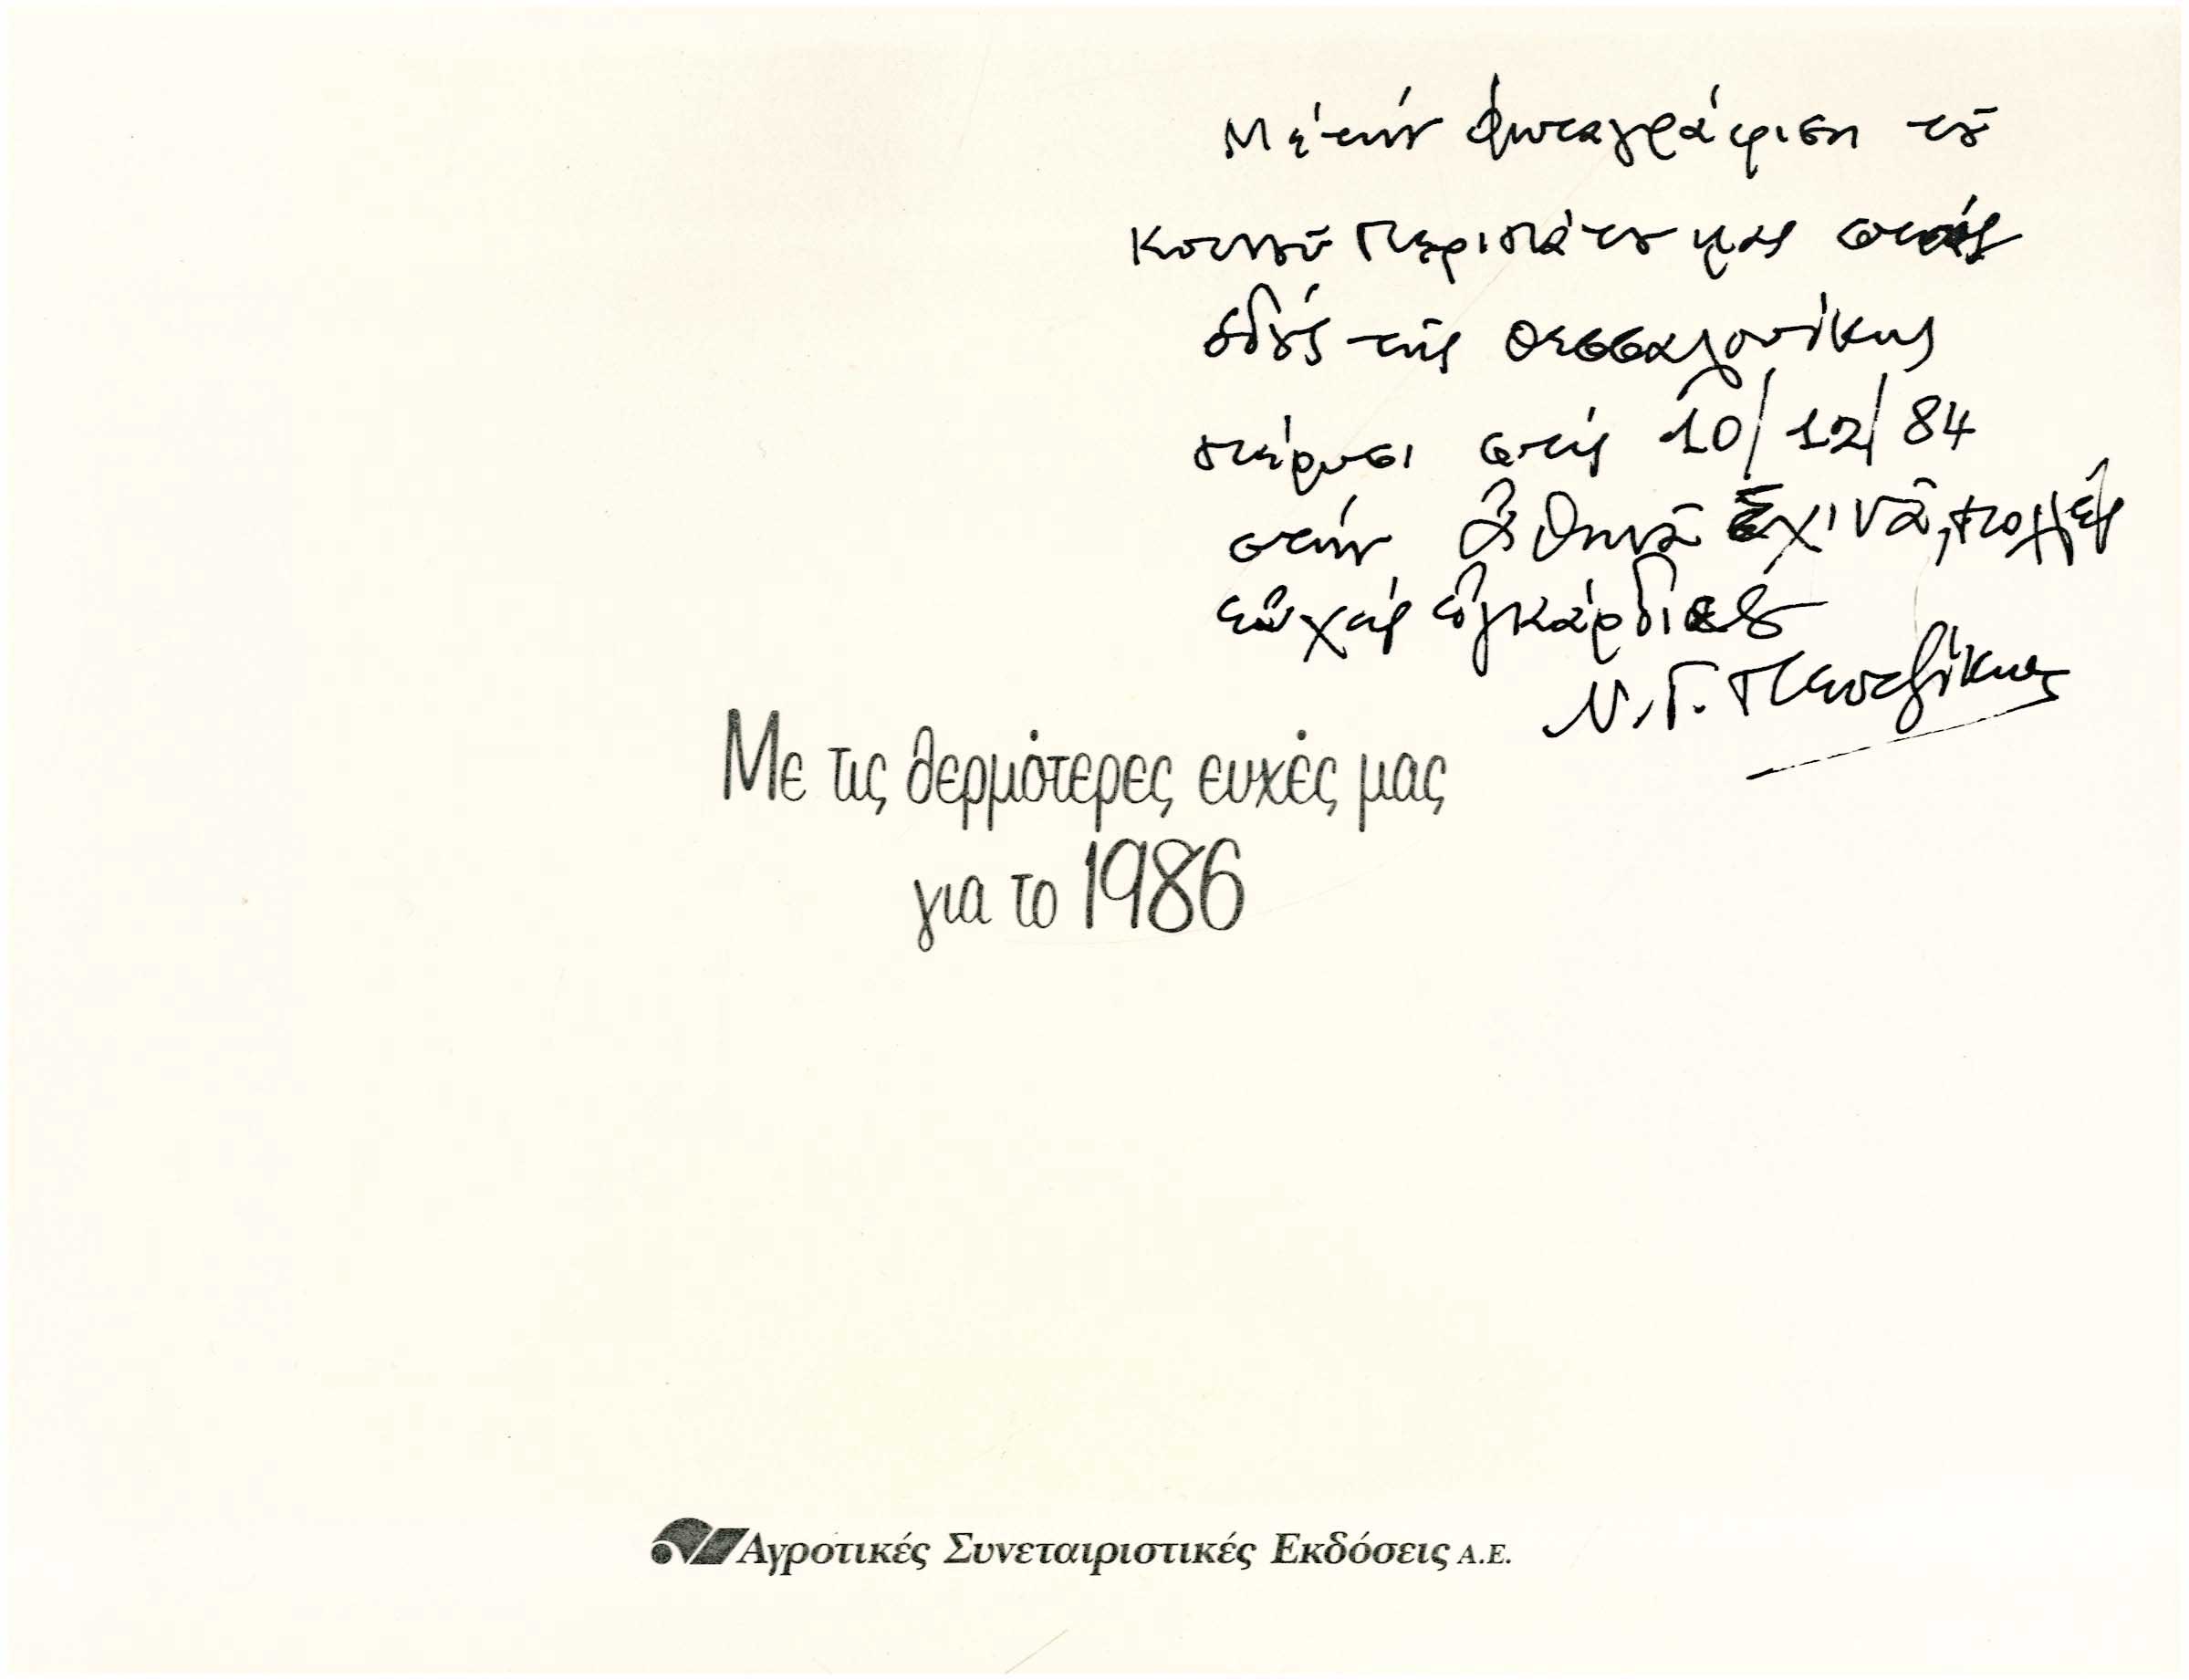 Μέ τήν φωτογράφιση τοῦ
κοινοῦ περιπάτου μας στούς
ὁδούς τῆς Θεσσαλονίκης
πέρυσι στίς 10/12/84
στήν Ἀθηνᾶ Σχινᾶ, πολλές
εὐχές ἐγκάρδιες
Ν. Γ. Πεντζίκης
Με τις θερμότερες ευχές μας
για το 1986
Αγροτικές Συνεταιριστικές Εκδόσεις Α.Ε.